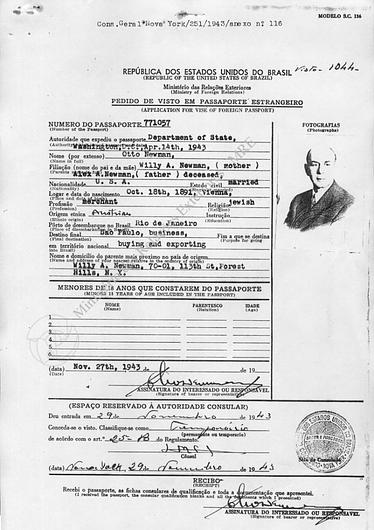 Cons. Geral "Nova York/251/1943/anexo nº 116
MODELO S.C. 136
REPÚBLICA DOS ESTADOS UNIDOS DO BRASIL
Visto- 1044
(REPUBLIC OF THE UNITED STATES OF BRAZIL)
Ministério das Relações Exteriores
(Ministry of Foreign Relations)
PEDIDO DE VISTO EM PASSAPORTE ESTRANGEIRO
(APPLICATION FOR VISE OF FOREIGN PASSPORT)
NUMERO DO PASSAPORTE 771057
(Number of the Passport)
FOTOGRAFIAS
(Photographs)
Autoridade que expediu o passaporte Department of State,
Washington, D.C. Apr. 14th, 1943
Nome (por extenso) Otto Newman,
(Name in full)
Filiação (nome do pai e da mãe) Willy A. Newman, ( mother )
Alex A. Newman, ( father ) deceased,
Nacionalidade U. S. A. Estado civil married
(Nationality)
Lugar e data do nascimento Oct. 18th, 1891, Vienna,
Profissão merchant Religião jewish
(Profession) (Religion)
Origem etnica Austrian Instrução
(Ethnic origin) (Education)
Pôrto de desembarque no Brasil Rio de Janeiro
Destino final Sao Paulo, business, Fim a que se destina
(Final destination) (Purpose for going)
em território nacional buying and exporting
Nome e domicílio do parente mais próximo no país de origem
(Name and address of your nearest relative in the country of origin)
Willy A. Newman, 70-01, 113th St, Forest
Hills, N. Y.
MENORES DE 18 ANOS QUE CONSTAREM DO PASSAPORTE
(MINORS 18 YEARS OF AGE INCLUDED IN THE PASSPORT)
NOME PARENTESCO IDADE
(Name) (Relation) (Age)
1.
2.
3.
4.
5.
6.
(data) Nov. 27th, 1943 de 19
(date)
ASSINATURA DO INTERESSADO OU RESPONSAVEL
(Signature of bearer or representative)
(ESPAÇO RESERVADO À AUTORIDADE CONSULAR)
Deu entrada em 29 de novembro de 1943
Concedo-se o visto. Classificado como temporário
(permanente ou temporario)
de acordo com o art. 25-B do Regulamento.
(Consul)
(data) Nova York, 29 de Novembro de 1943
RECIBO
(RECEIPT)
Recebi o passaporte, as fichas consulares de qualificação e toda a documentação que apresentei.
ASSINATURA DO INTERESSADO OU RESPONSAVEL
(Signature of bearer or representative)